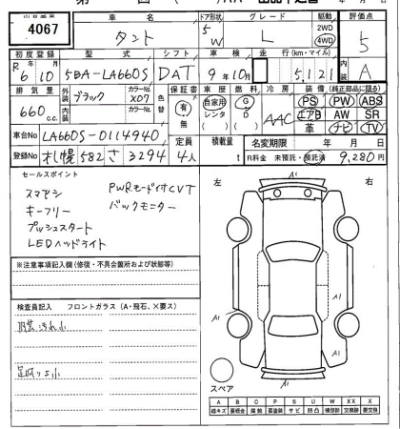 4067
車名 ドア形状 グレード 駆動 評価点
タント 5 W L 2WD 4WD 5
初度登録 型式 シフト 車検 走行(km・マイル) 内装
R 6年 10月 5BA-LA660S DAT 9年10月 5,121 A
排気量 外装 ブラック カラーNo. X07 色替 保証書 車歴 燃料 冷房 装備(純正部品に限る)
660cc 内装 カラーNo. 有 無 自家用 レンタ G D AAC PS PW ABS
エアB AW SR
革 ナビ TV
車台No LA660S-0114940 定員 積載量 名変期限 年 月 日
登録No 札幌 582 さ 3294 4人 t R料金 未預託・預託済 9,280円
セールスポイント
スマアシ PWRモード付CVT
キーフリー バックモニター
プッシュスタート
LEDヘッドライト
左 右
A1
A1
A1
A1
スペア
※注意事項記入欄(修復・不具合箇所および状態等)
検査員記入 フロントガラス(A・飛石、×要ス)
内装汚れ小
A B C P S U W X XX